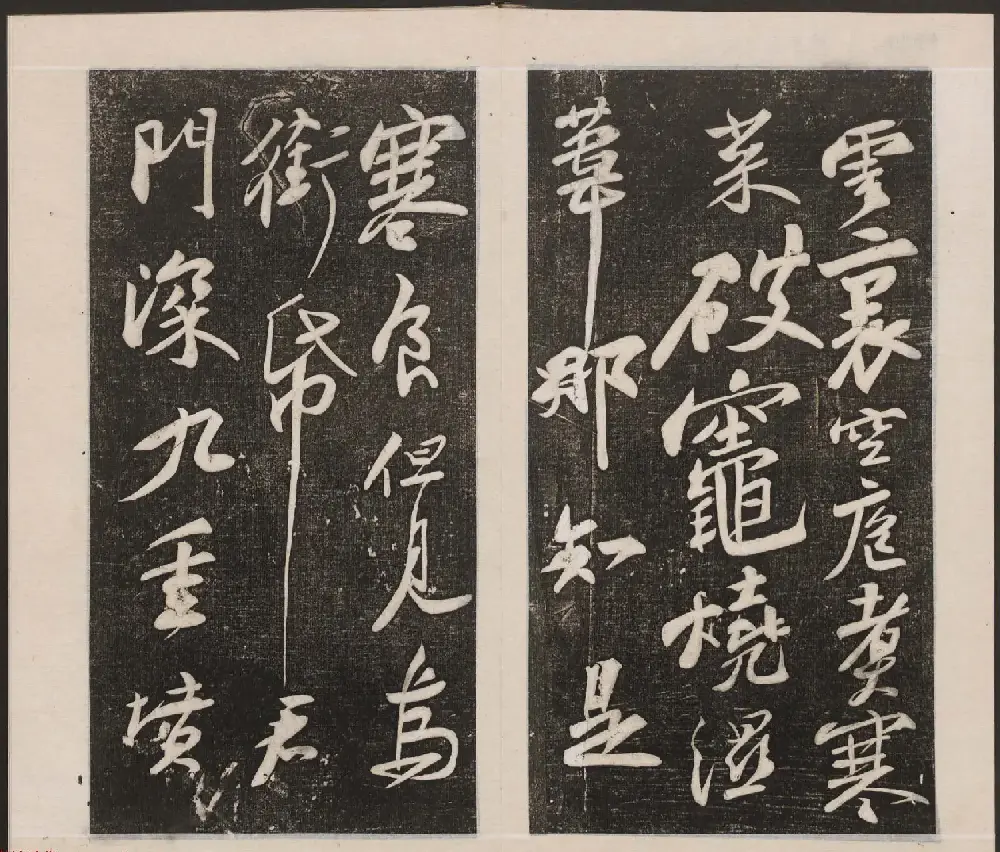 雲裏空庖煮寒
菜破竈燒濕
葦那知是
寒食但見烏
銜帋君
門深九重墳